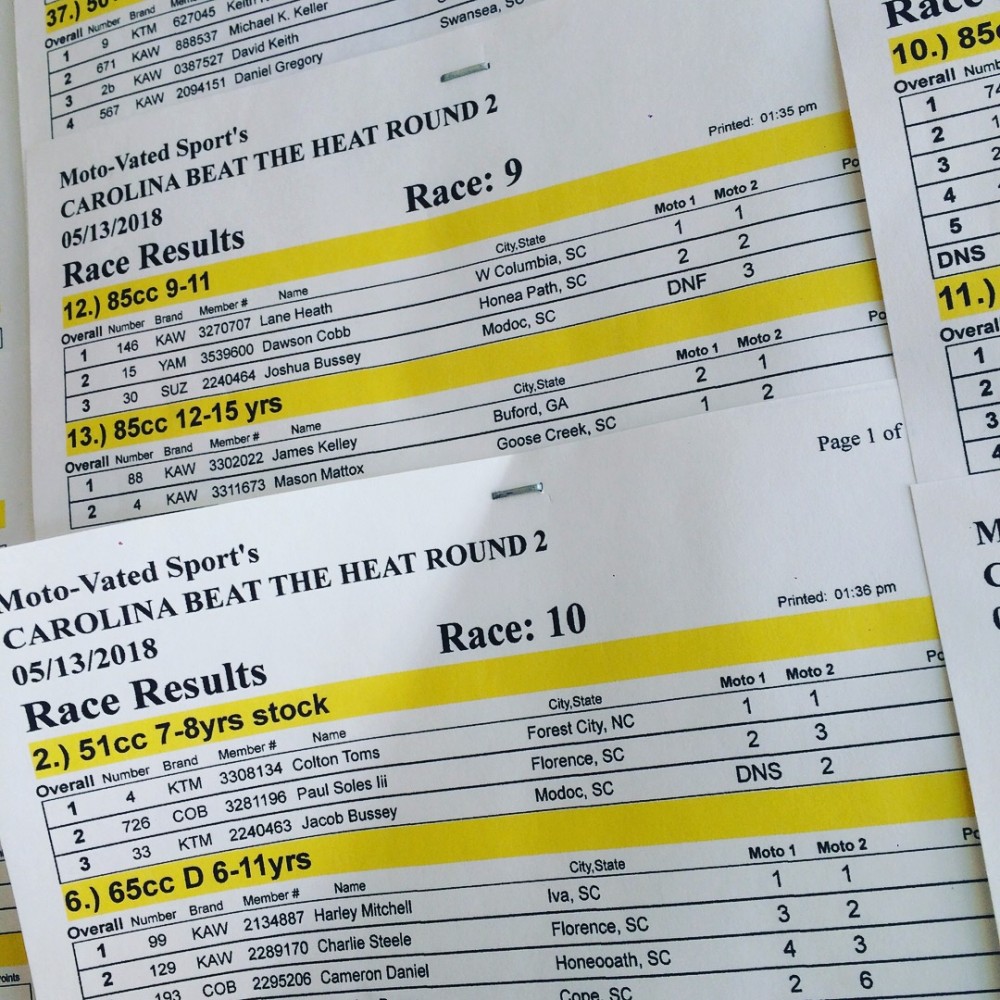 37.)
Overall Number Brand
1 9 KTM 627045
2 671 KAW 888537 Michael K. Keller
3 2b KAW 0387527 David Keith
4 567 KAW 2094151 Daniel Gregory
Swansea,
Moto-Vated Sport's
CAROLINA BEAT THE HEAT ROUND 2
05/13/2018
Race: 9
Printed: 01:35 pm
Race Results
12.) 85cc 9-11
Overall Number Brand Member # Name City,State Moto 1 Moto 2 Po
1 146 KAW 3270707 Lane Heath W Columbia, SC 1 1
2 15 YAM 3539600 Dawson Cobb Honea Path, SC 2 2
3 30 SUZ 2240464 Joshua Bussey Modoc, SC DNF 3
13.) 85cc 12-15 yrs
Overall Number Brand Member # Name City,State Moto 1 Moto 2 Po
1 88 KAW 3302022 James Kelley Buford, GA 2 1
2 4 KAW 3311673 Mason Mattox Goose Creek, SC 1 2
Page 1 of
Moto-Vated Sport's
CAROLINA BEAT THE HEAT ROUND 2
05/13/2018
Race: 10
Printed: 01:36 pm
Race Results
2.) 51cc 7-8yrs stock
Overall Number Brand Member # Name City,State Moto 1 Moto 2 Po
1 4 KTM 3308134 Colton Toms Forest City, NC 1 1
2 726 COB 3281196 Paul Soles Iii Florence, SC 2 3
3 33 KTM 2240463 Jacob Bussey Modoc, SC DNS 2
6.) 65cc D 6-11yrs
Overall Number Brand Member # Name City,State Moto 1 Moto 2 Po
1 99 KAW 2134887 Harley Mitchell Iva, SC 1 1
2 129 KAW 2289170 Charlie Steele Florence, SC 3 2
193 COB 2295206 Cameron Daniel Honeooath, SC 4 3
Cope, SC 2 6
Race
10.) 85c
Overall Numb
1 74
2 1
3 2
4
5
DNS
11.)
Overal
1
2
3
4
M
C
oints